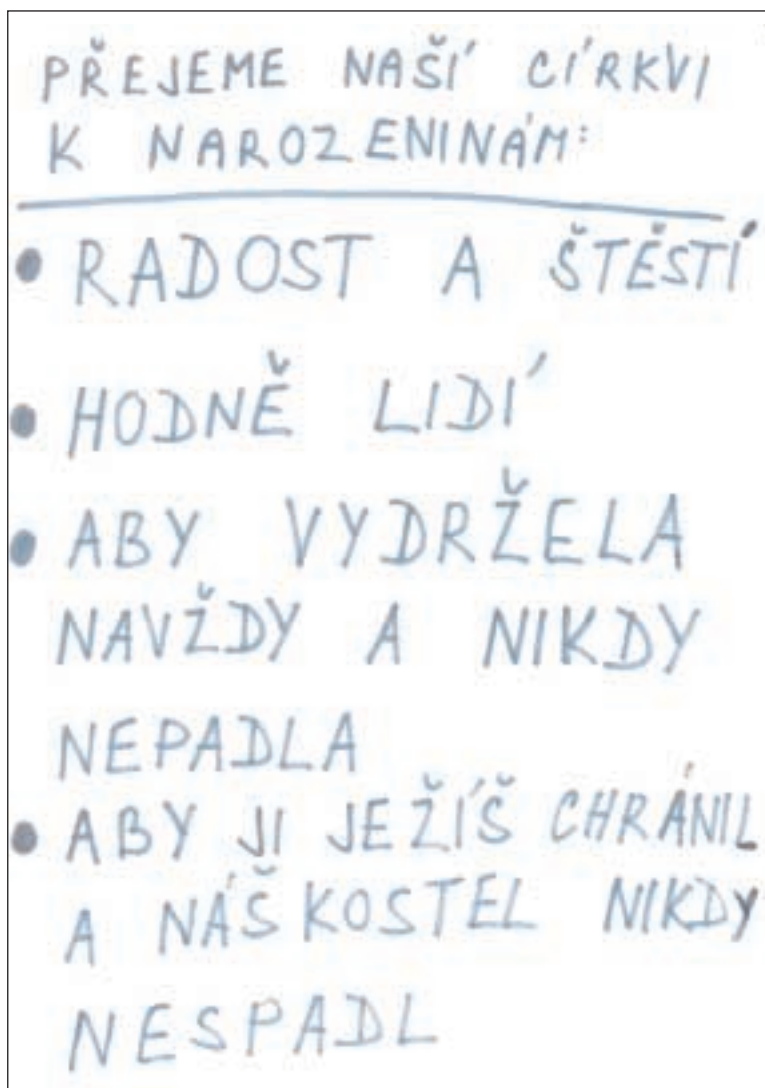 PŘEJEME NAŠÍ CÍRKVI
K NAROZENINÁM:
• RADOST A ŠTĚSTÍ
• HODNĚ LIDÍ
• ABY VYDRŽELA
NAVŽDY A NIKDY
NEPADLA
• ABY JI JEŽÍŠ CHRÁNIL
A NÁŠ KOSTEL NIKDY
NESPADL